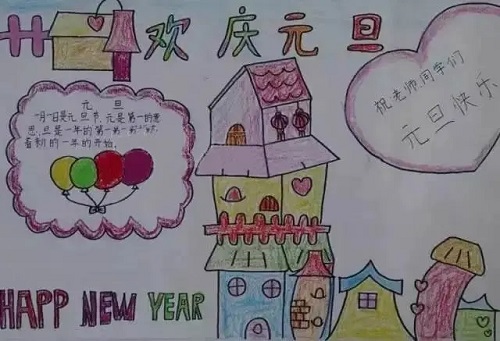 欢庆元旦
元旦
一月一日是元旦节，元是第一的意
思，旦是一年的第一
着新的一年的开始。
祝老师同学们
元旦快乐
HAPP NEW YEAR